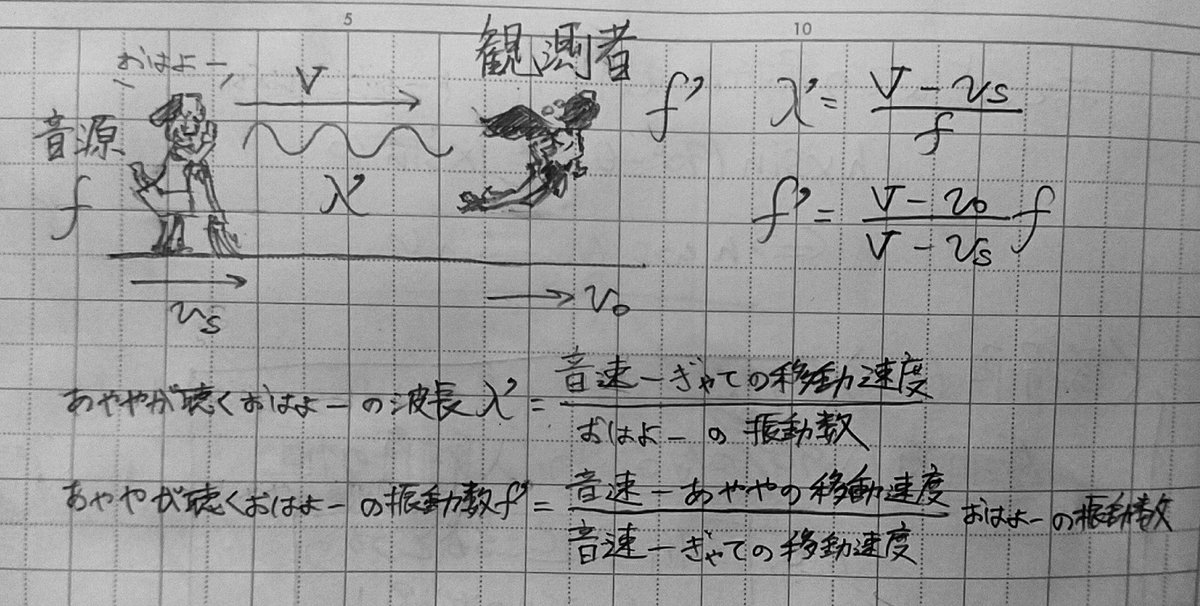 5 10
おはよー
V
観測者
音源
f
λ'
f'
λ' = V - vs / f
f' = V - vo / V - vs f
vs
vo
あややが聴くおはよーの波長λ' = 音速ーぎゃての移動速度 / おはよーの振動数
あややが聴くおはよーの振動数f' = 音速ーあややの移動速度 / 音速ーぎゃての移動速度 おはよーの振動数